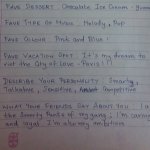 FAVE DESSERT: Chocolate Ice Cream - yumm
FAVE TYPE OF MUSIC: Melody, Pop
FAVE COLOUR: Pink and Blue!
FAVE VACATION SPOT: It's my dream to
visit the City of Love - Paris!!
DESCRIBE YOUR PERSONALITY: Smarty,
Talkative, Sensitive, Competitive
WHAT YOUR FRIENDS SAY ABOUT YOU: I'm
the Smarty Pants of my gang. I'm caring
and loyal. I'm also very ambitious